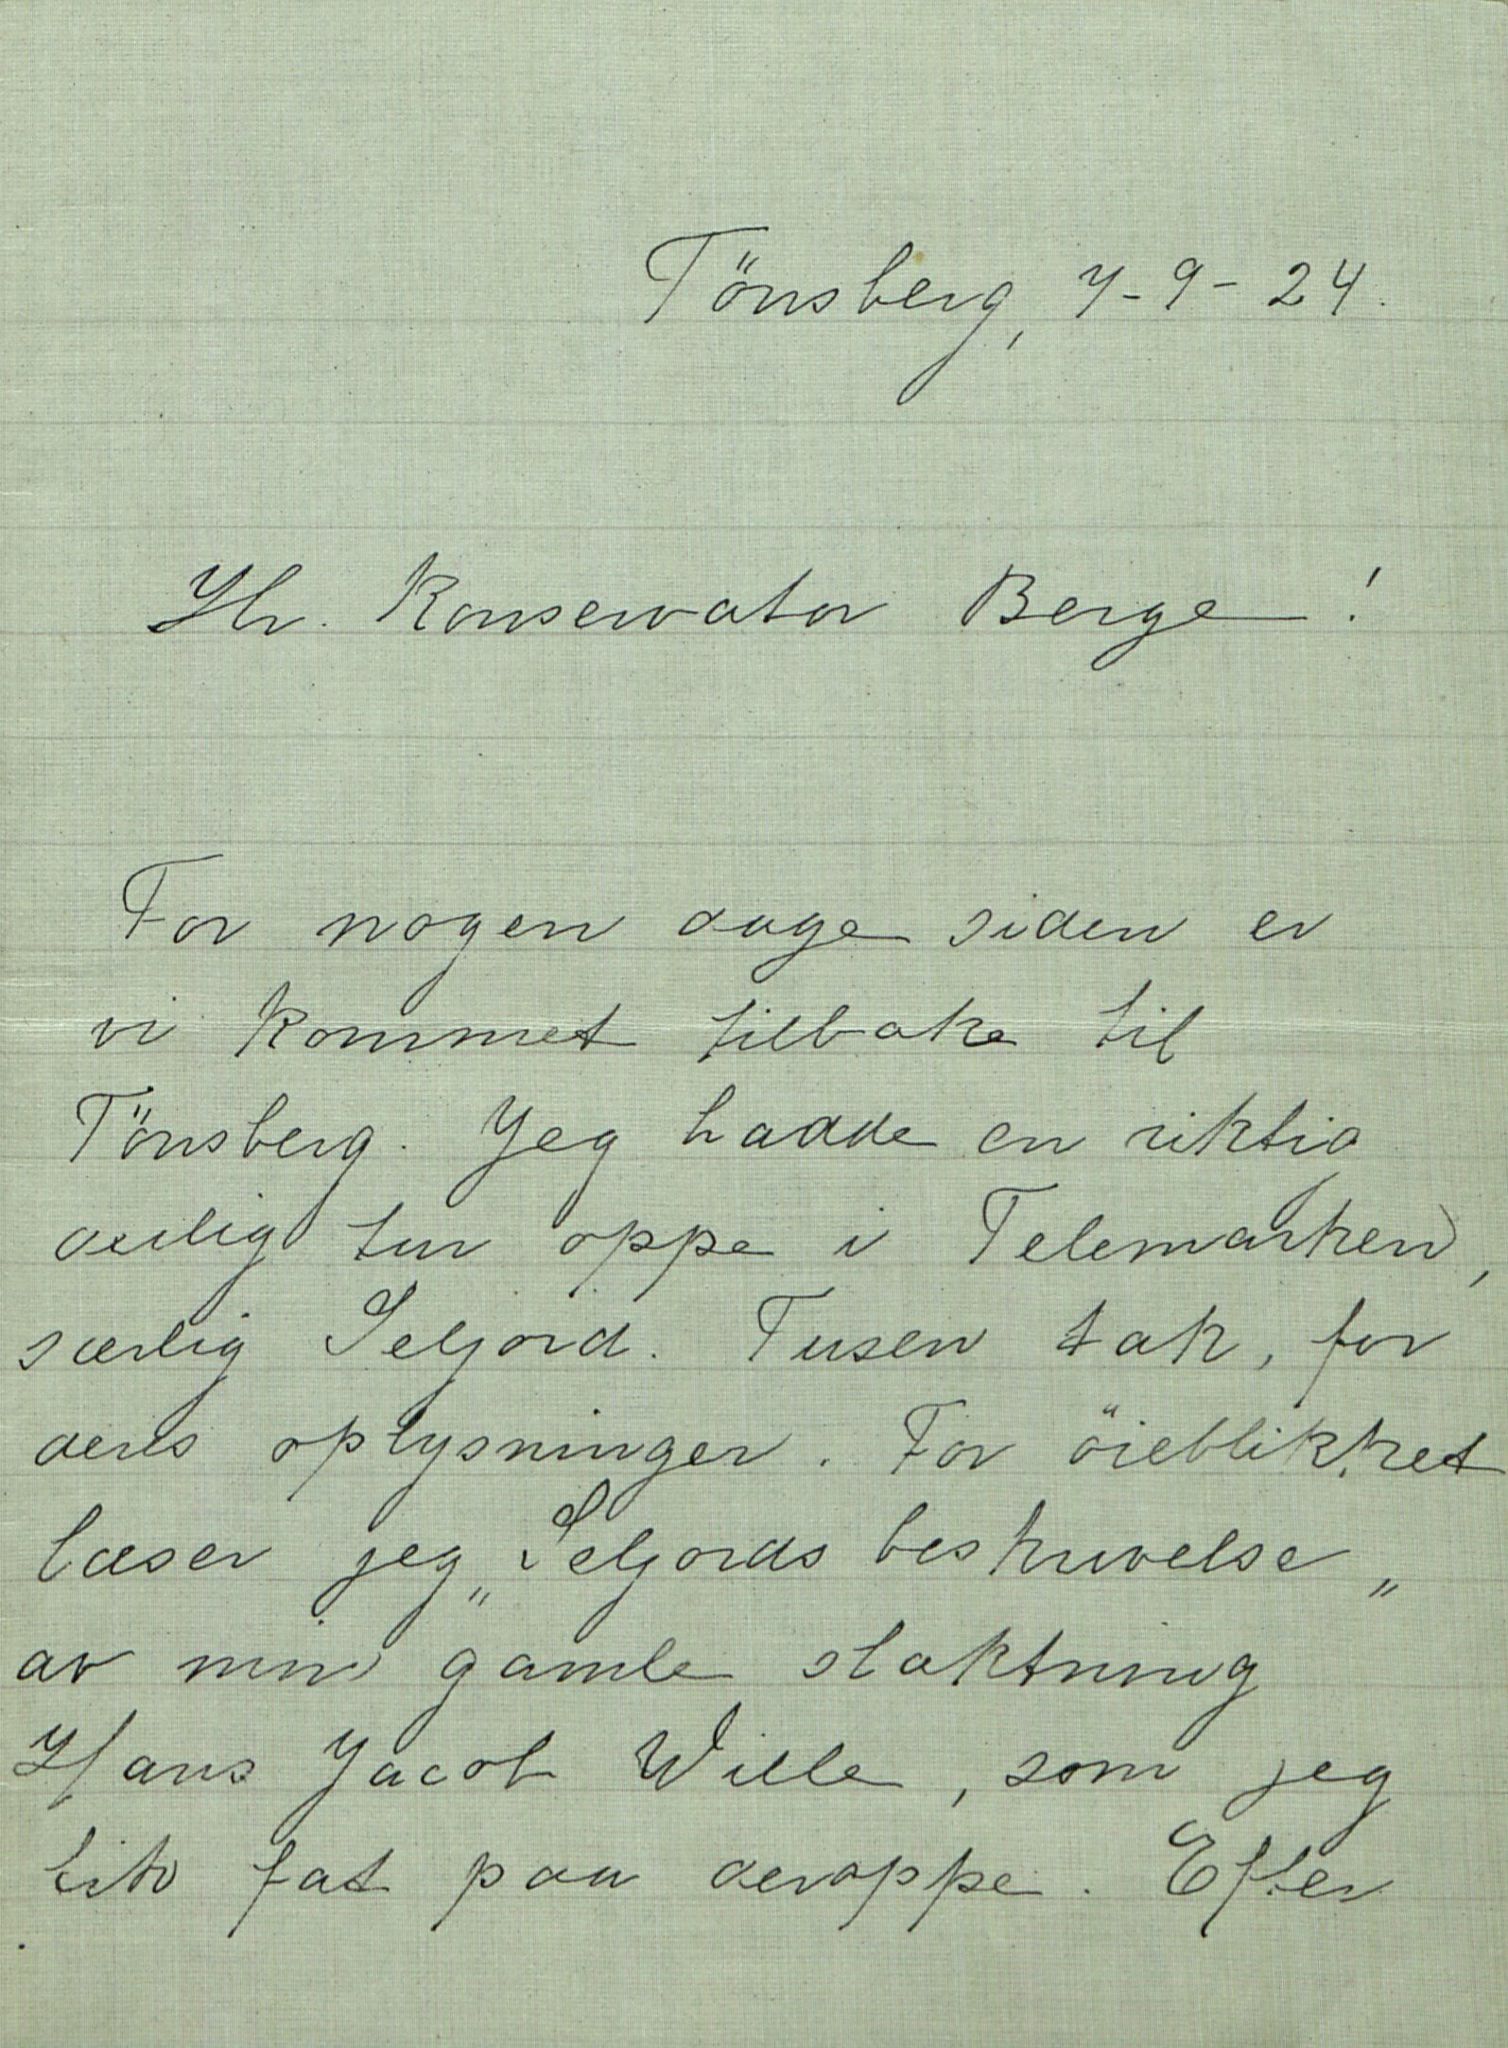 Tönsberg, 7-9-24.
Hr. Konservator Berge!
For nogen dage siden er
vi kommet tilbake til
Tönsberg. Jeg hadde en riktig
deilig tur oppe i Telemarken,
særlig Seljord. Tusen tak, for
deres oplysninger. For öieblikket
læser jeg „Seljords beskrivelse„
av min gamle slaktning
Hans Jacob Wille, som jeg
fik fat paa deroppe. Efter